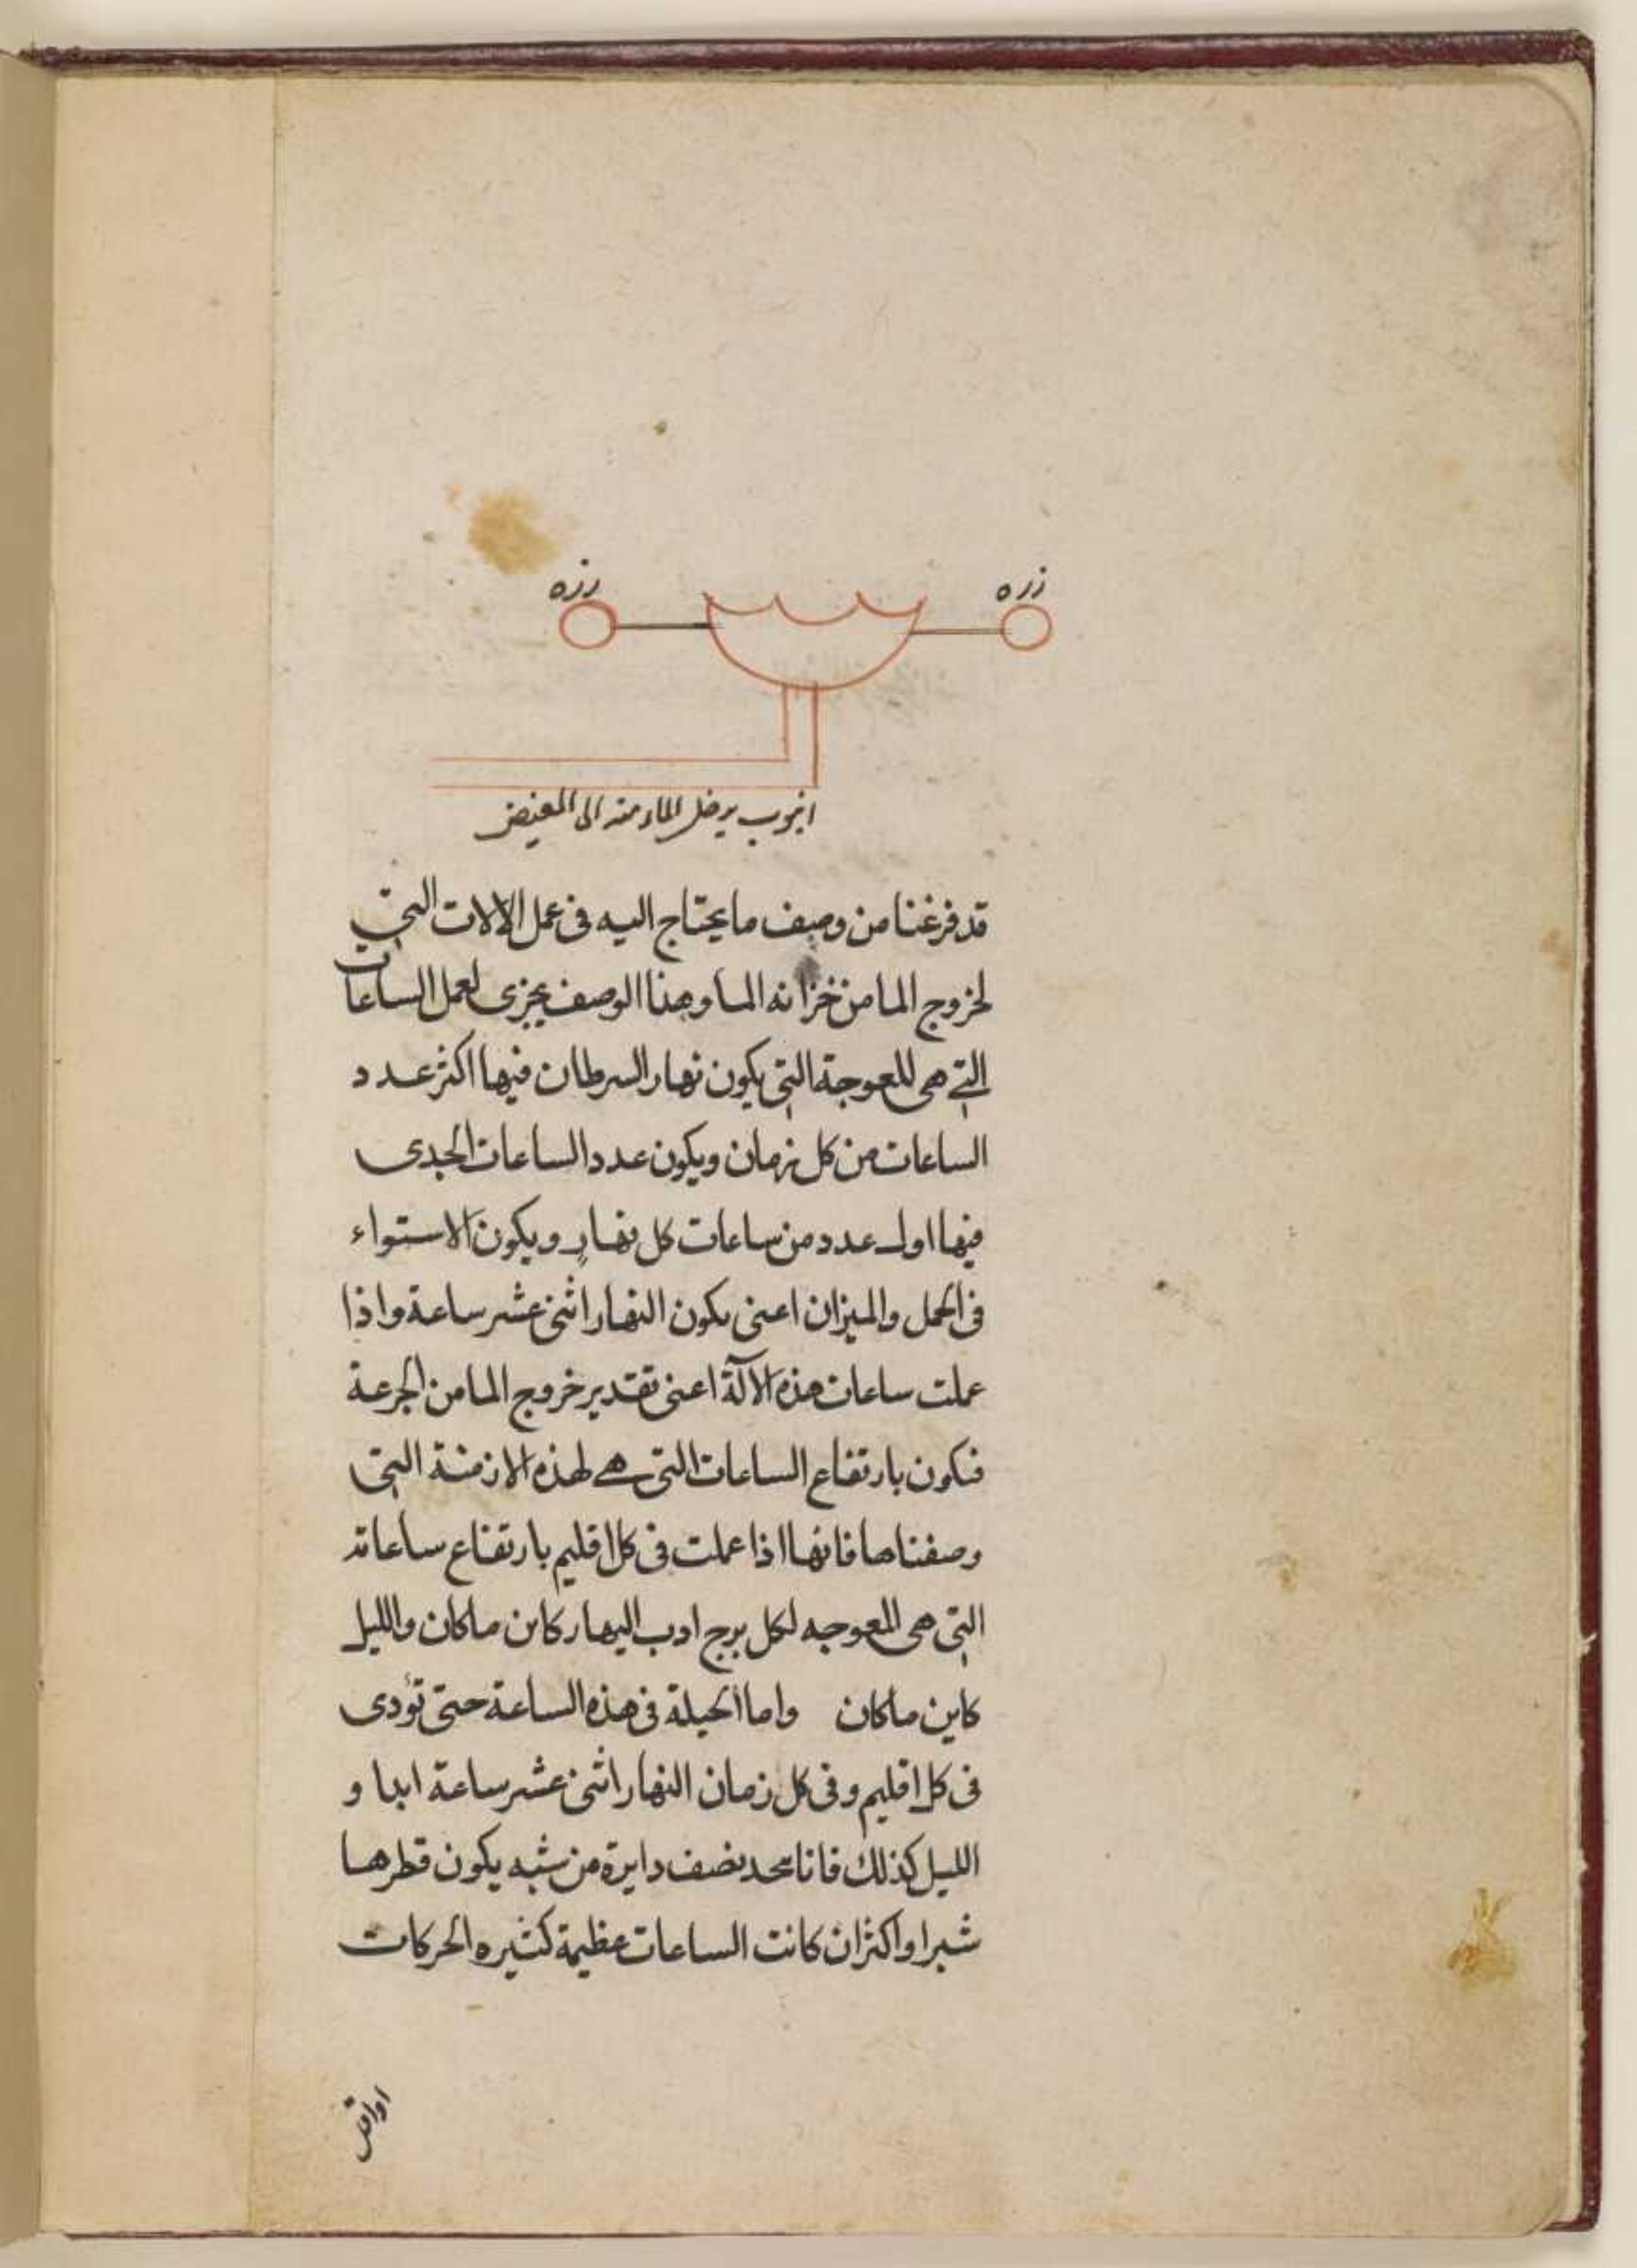 زره
رزه
انبوب يدخل الماء منه الى المغيض
قد فرغنا من وصف ما يحتاج اليه فى عمل الالات التى
لخروج الما من خزانه الما وهذا الوصف يجزى لعمل الساعات
التى هى للمعوجة التى يكون نهار السرطان فيها اكثر عدد
الساعات من كل زمان ويكون عدد الساعات الجدى
فيها اول عدد من ساعات كل نهار ويكون الاستواء
فى الحمل والميزان اعنى يكون النهار اثنى عشر ساعة واذا
عملت ساعات هذه الآلة اعنى تقدير خروج الما من الجرعة
فتكون بارتفاع الساعات التى هى لهذه الازمنة التى
وصفناها فانها اذا عملت فى كل اقليم بارتفاع ساعاته
التى هى المعوجيه لكل برج النهار كاين ماكان والليل
كاين ماكان واما الحيلة فى هذه الساعة حتى تؤدى
فى كل اقليم وفى كل زمان النهار اثنى عشر ساعة ابدا و
الليل كذلك فانا نتخذ نصف دايرة من شبه يكون قطرها
شبرا او اكثر ان كانت الساعات عظيمة كثيره الحركات
او اقل